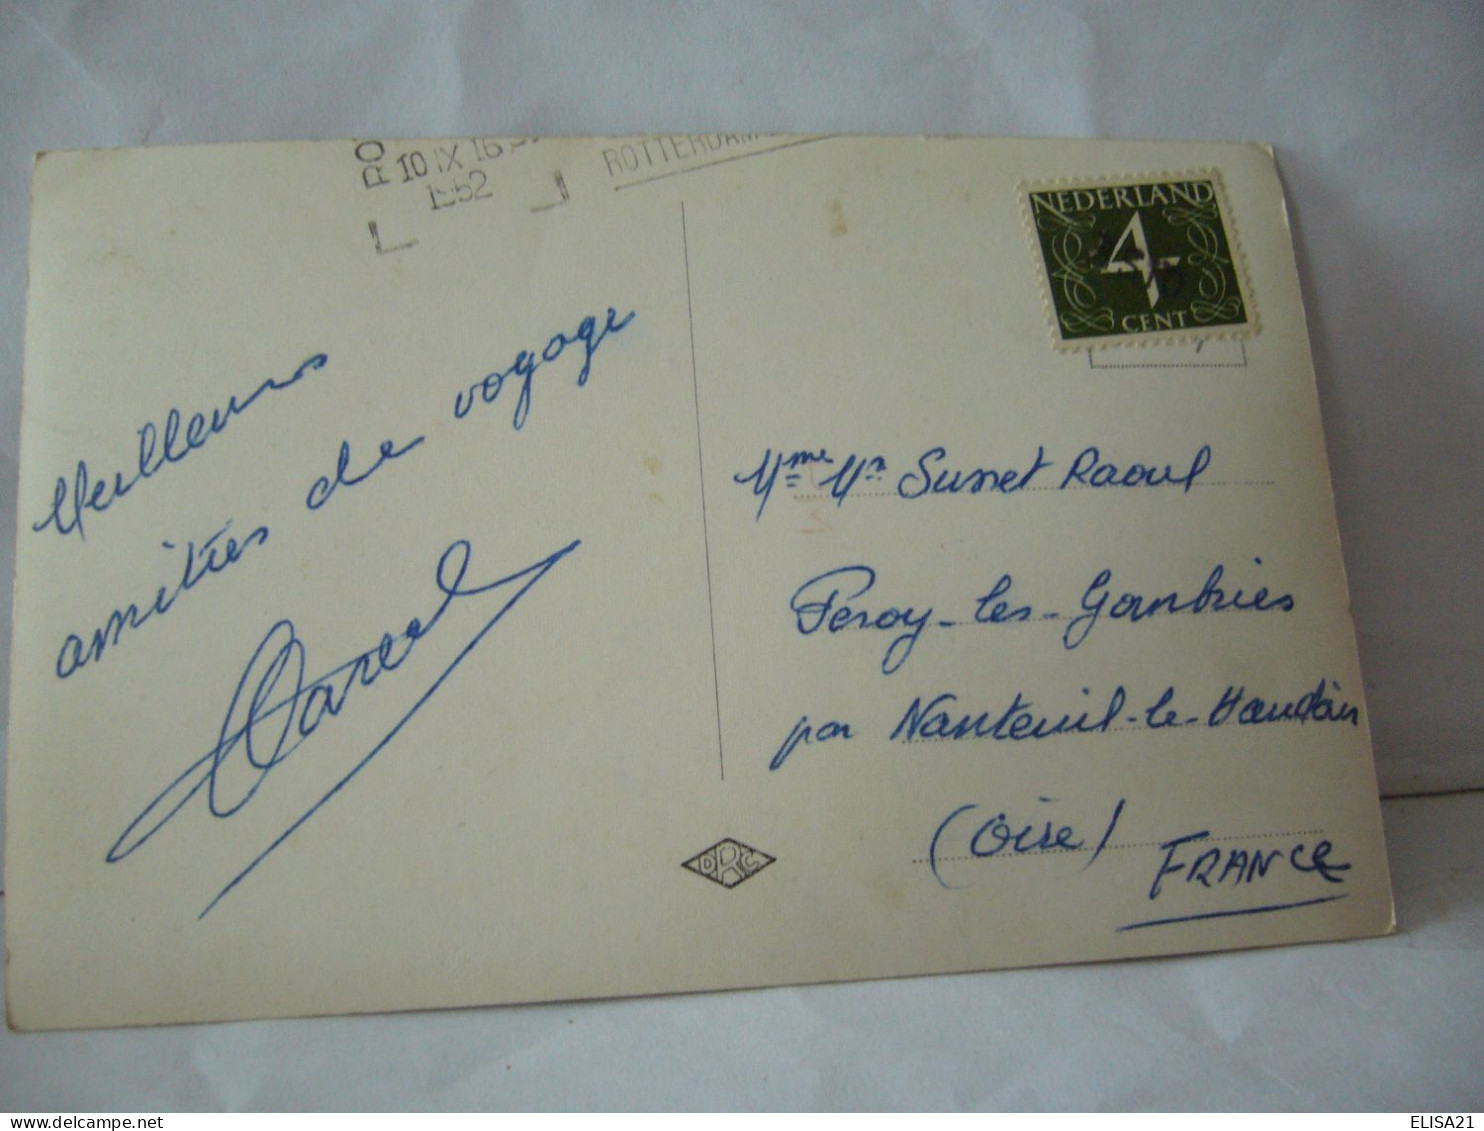 RO
10 IX 16
1952
ROTTERDAM
NEDERLAND
4
CENT
Meilleures
amitiés de voyage
Marcel
Mme Mr Susset Raoul
Peroy-les-Gombries
par Nanteuil-le-Haudoin
(Oise)
FRANCE
ELISA21